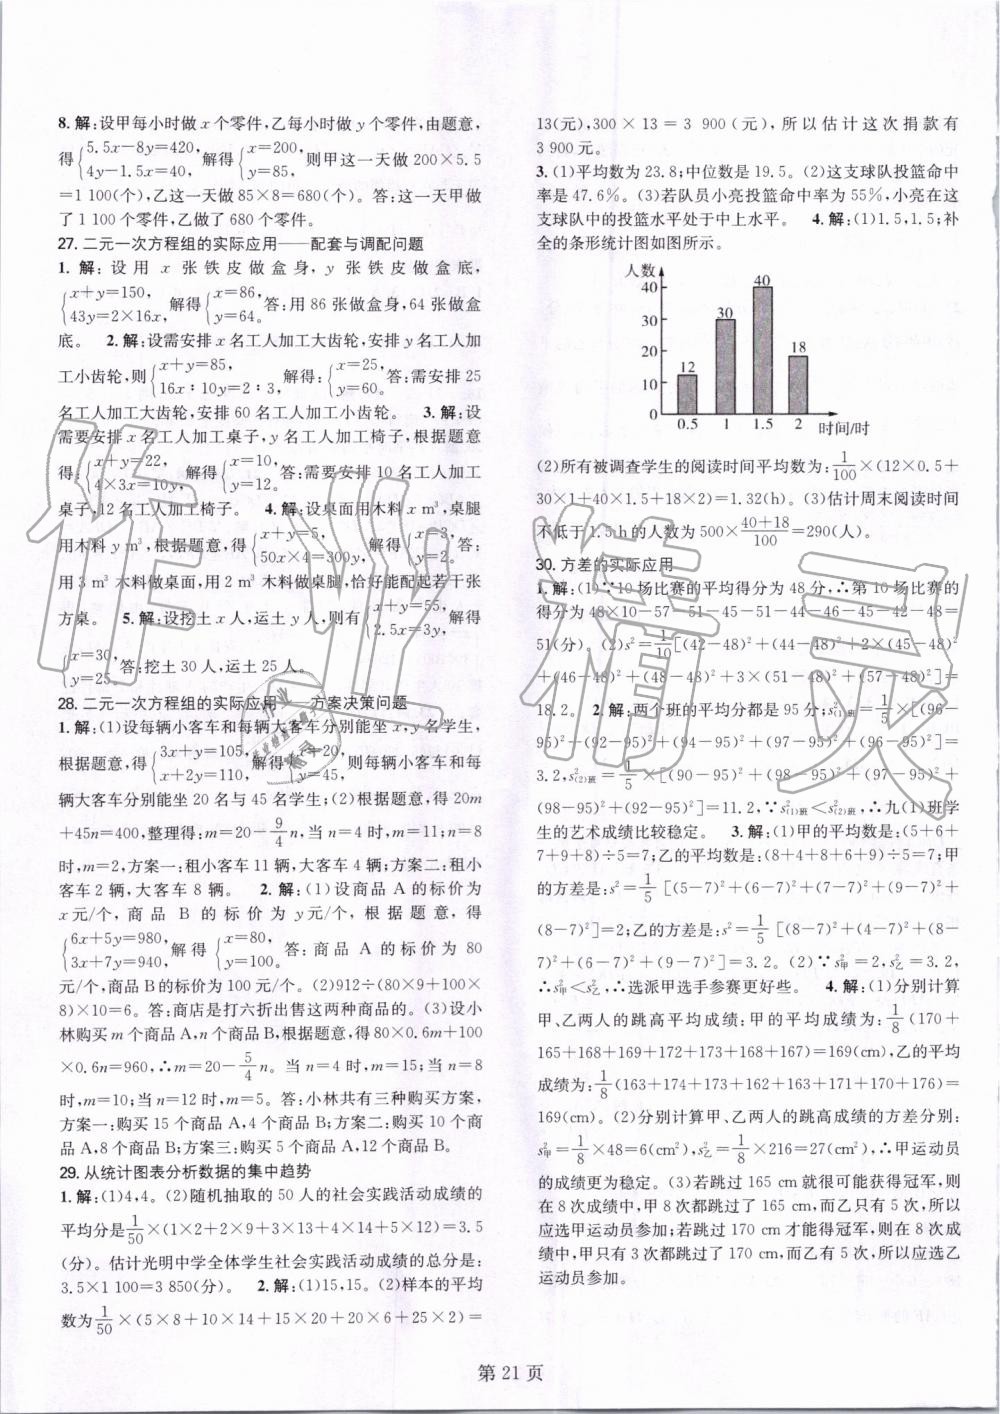 8.解:设甲每小时做 x 个零件,乙每小时做 y 个零件,由题意,
得{5.5x-8y=420, 4y-1.5x=40, 解得{x=200, y=85, 则甲这一天做 200×5.5
=1 100(个),乙这一天做 85×8=680(个).答:这一天甲做
了 1 100 个零件,乙做了 680 个零件.
27.二元一次方程组的实际应用——配套与调配问题
1.解:设用 x 张铁皮做盒身,y 张铁皮做盒底,
{x+y=150, 43y=2×16x, 解得{x=86, y=64. 答:用 86 张做盒身,64 张做盒
底. 2.解:设需安排 x 名工人加工大齿轮,安排 y 名工人加
工小齿轮,则{x+y=85, 16x∶10y=2∶3, 解得:{x=25, y=60. 答:需安排 25
名工人加工大齿轮,安排 60 名工人加工小齿轮. 3.解:设
需要安排 x 名工人加工桌子,y 名工人加工椅子,根据题意
得:{x+y=22, 4×3x=10y, 解得{x=10, y=12. 答:需要安排 10 名工人加工
桌子,12 名工人加工椅子. 4.解:设桌面用木料 x m³,桌腿
用木料 y m³,根据题意,得{x+y=5, 50x×4=300y, 解得{x=3, y=2. 答:
用 3 m³ 木料做桌面,用 2 m³ 木料做桌腿,恰好能配起若干张
方桌. 5.解:设挖土 x 人,运土 y 人,则有{x+y=55, 2.5x=3y, 解得
{x=30, y=25. 答:挖土 30 人,运土 25 人.
28.二元一次方程组的实际应用——方案决策问题
1.解:(1)设每辆小客车和每辆大客车分别能坐 x,y 名学生,
根据题意,得{3x+y=105, x+2y=110, 解得{x=20, y=45, 则每辆小客车和每
辆大客车分别能坐 20 名与 45 名学生;(2)根据题意,得 20m
+45n=400,整理得:m=20-9/4 n,当 n=4 时,m=11;n=8
时,m=2,方案一:租小客车 11 辆,大客车 4 辆;方案二:租小
客车 2 辆,大客车 8 辆. 2.解:(1)设商品 A 的标价为
x 元/个,商品 B 的标价为 y 元/个,根据题意,得
{6x+5y=980, 3x+7y=940, 解得{x=80, y=100. 答:商品 A 的标价为 80
元/个,商品 B 的标价为 100 元/个.(2)912÷(80×9+100×
8)×10=6.答:商店是打六折出售这两种商品的.(3)设小
林购买 m 个商品 A,n 个商品 B,根据题意,得 80×0.6m+100
×0.6n=960,∴m=20-5/4 n.当 n=4 时,m=15;当 n=8
时,m=10;当 n=12 时,m=5.答:小林共有三种购买方案,
方案一:购买 15 个商品 A,4 个商品 B;方案二:购买 10 个商
品 A,8 个商品 B;方案三:购买 5 个商品 A,12 个商品 B.
29.从统计图表分析数据的集中趋势
1.解:(1)4,4.(2)随机抽取的 50 人的社会实践活动成绩的
平均分是1/50×(1×2+2×9+3×13+4×14+5×12)=3.5
(分).估计光明中学全体学生社会实践活动成绩的总分是:
3.5×1 100=3 850(分). 2.解:(1)15,15.(2)样本的平均
数为1/50×(5×8+10×14+15×20+20×6+25×2)=
13(元),300×13=3 900(元),所以估计这次捐款有
3 900元.
3.(1)平均数为 23.8;中位数是 19.5.(2)这支球队投篮命中
率是 47.6%.(3)若队员小亮投篮命中率为 55%,小亮在这
支球队中的投篮水平处于中上水平. 4.解:(1)1.5,1.5;补
全的条形统计图如图所示.
人数
40
40
30
30
20
18
12
10
0
0.5 1 1.5 2 时间/时
(2)所有被调查学生的阅读时间平均数为:1/100×(12×0.5+
30×1+40×1.5+18×2)=1.32(h).(3)估计周末阅读时间
不低于 1.5 h 的人数为 500×(40+18)/100=290(人).
30.方差的实际应用
1.解:(1)∵10 场比赛的平均得分为 48 分,∴第 10 场比赛的
得分为 48×10-57-51-45-51-44-46-45-42-48=
51(分).(2)s²=1/10[(42-48)²+(44-48)²+2×(45-48)²
+(46-48)²+(48-48)²+3×(51-48)²+(57-48)²]=
18.2. 2.解:两个班的平均分都是 95 分;s²(1)班=1/5×[(96-
95)²+(92-95)²+(94-95)²+(97-95)²+(96-95)²]=
3.2,s²(2)班=1/5×[(90-95)²+(98-95)²+(97-95)²+
(98-95)²+(92-95)²]=11.2,∵s²(1)班<s²(2)班,∴九(1)班学
生的艺术成绩比较稳定. 3.解:(1)甲的平均数是:(5+6+
7+9+8)÷5=7;乙的平均数是:(8+4+8+6+9)÷5=7;甲
的方差是:s²=1/5[(5-7)²+(6-7)²+(7-7)²+(9-7)²+
(8-7)²]=2;乙的方差是:s²=1/5[(8-7)²+(4-7)²+
(8-7)²+(6-7)²+(9-7)²]=3.2.(2)∵s²甲=2,s²乙=3.2,
∴s²甲<s²乙,∴选派甲选手参赛更好些. 4.解:(1)分别计算
甲、乙两人的跳高平均成绩:甲的平均成绩为:1/8(170+
165+168+169+172+173+168+167)=169(cm),乙的平均
成绩为:1/8(163+174+173+162+163+171+170+176)=
169(cm).(2)分别计算甲、乙两人的跳高成绩的方差分别:
s²甲=1/8×48=6(cm²),s²乙=1/8×216=27(cm²),∴甲运动员
的成绩更为稳定.(3)若跳过 165 cm 就能获得冠军,则
在 8 次成绩中,甲 8 次都跳过了 165 cm 而乙只有 5 次,所以
应选甲运动员参加;若跳过 170 cm 才能得冠军,则在 8 次成
绩中,甲只有 3 次都跳过了 170 cm,而乙有 5 次,所以应选乙
运动员参加.
第 21 页
作业精灵